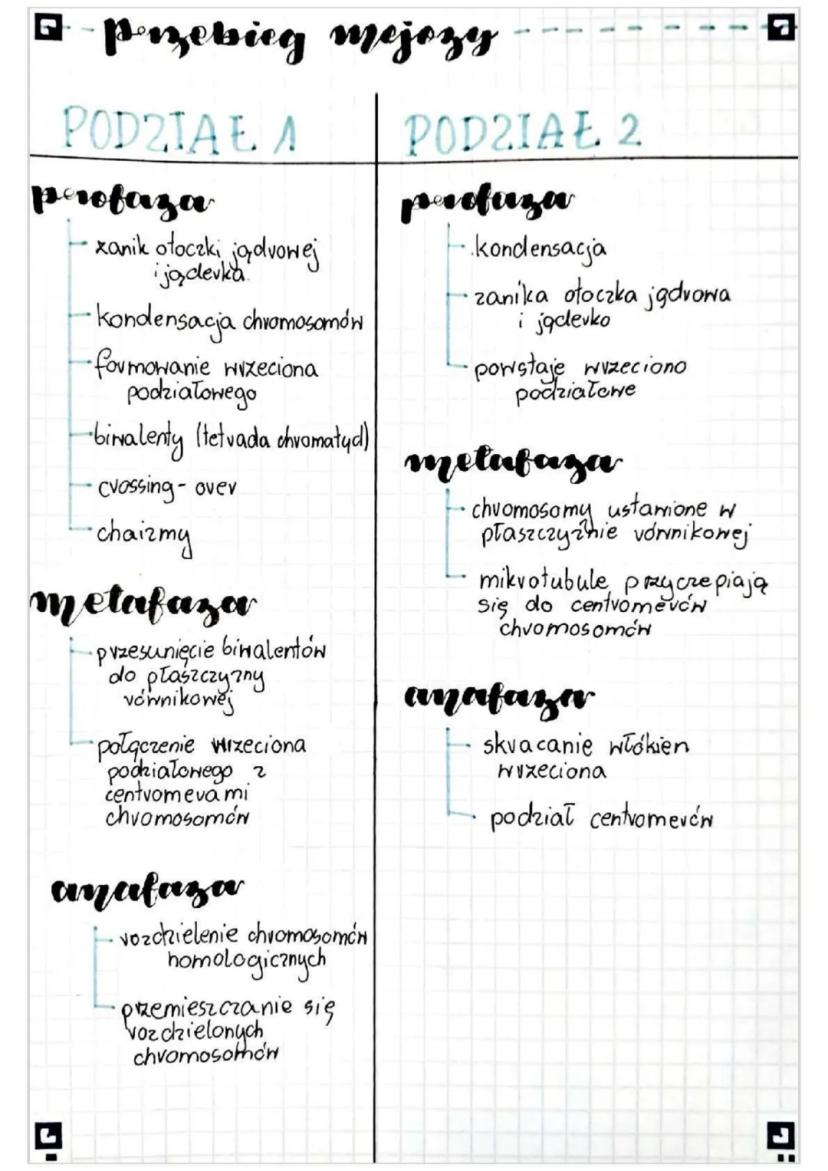 przebieg mejozy
PODZIAŁ 1
profaza
zanik otoczki jądrowej
i jąderka
kondensacja chromosomów
formowanie wrzeciona
podziałowego
biwalenty (tetrada chromatyd)
crossing-over
chaizmy
metafaza
przesunięcie biwalentów
do płaszczyzny
równikowej
połączenie wrzeciona
podziałowego z
centromerami
chromosomów
anafaza
rozdzielenie chromosomów
homologicznych
przemieszczanie się
rozdzielonych
chromosomów
PODZIAŁ 2
profaza
kondensacja
zanika otoczka jądrowa
i jąderko
powstaje wrzeciono
podziałowe
metafaza
chromosomy ustawione w
płaszczyźnie równikowej
mikrotubule przyczepiają
się do centromerów
chromosomów
anafaza
skracanie włókien
wrzeciona
podział centromerów